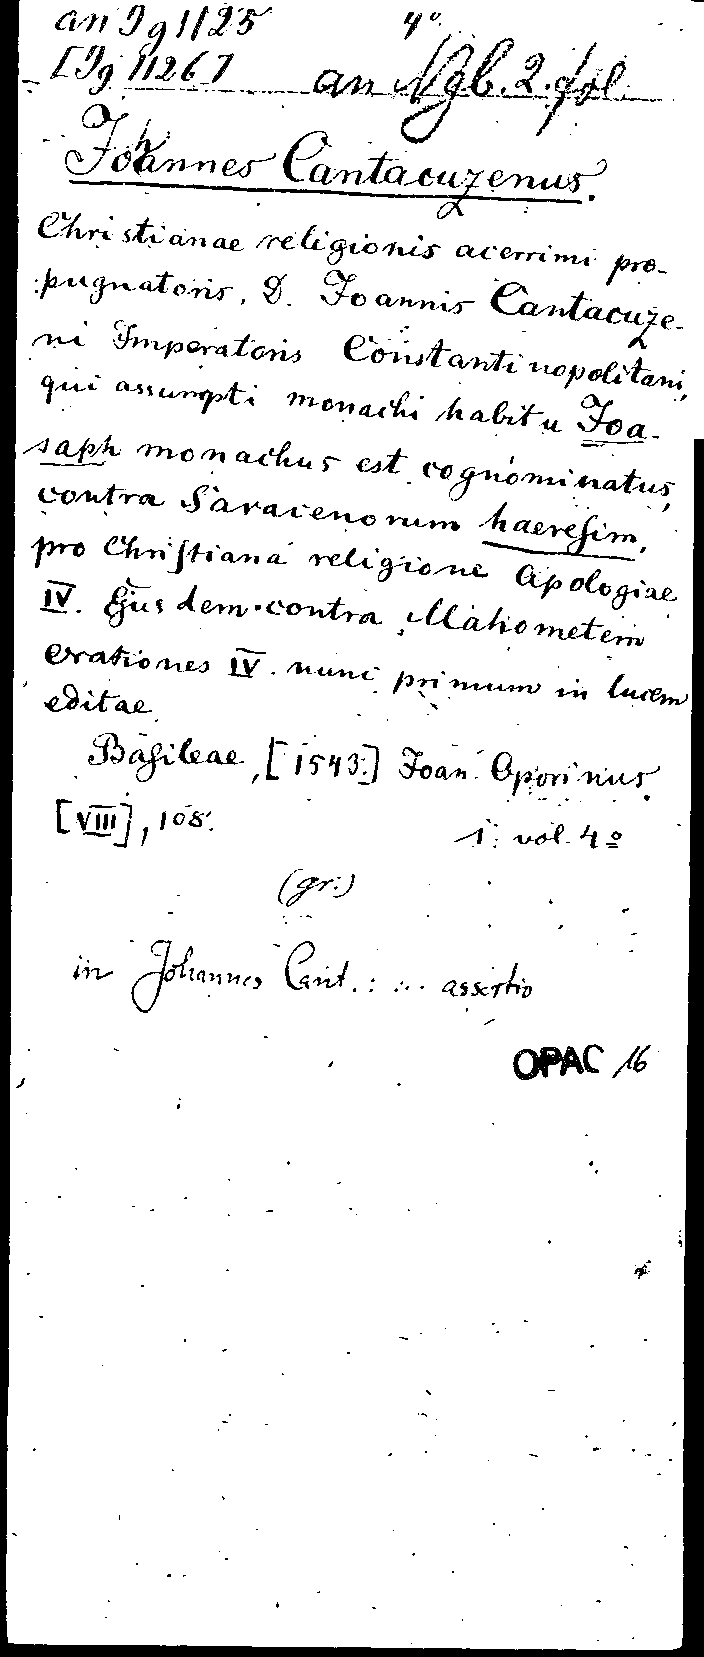 an Ig 1125 4°
[Ig 11267 an Ngb. 2. fol.
Johannes Cantacuzenus.
Christianae religionis acerrimi pro-
pugnatoris, D. Joannis Cantacuze-
ni Imperatoris Constantinopolitani,
qui assumpti monachi habitu Joa-
saph monachus est cognominatus,
contra Saracenorum haeresim,
pro Christiana religione Apologiae
IV. Ejusdem contra Mahometem
orationes IV. nunc primum in lucem
editae
Basileae, [1543.] Joan. Oporinus.
[VIII], 108. 1. vol. 4º
(gr.)
in Johannes Cant. : ... assertio
OPAC 16